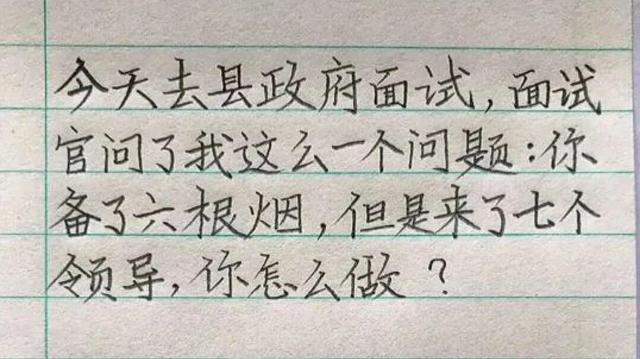 今天去县政府面试,面试
官问了我这么一个问题:你
备了六根烟,但是来了七个
领导,你怎么做?